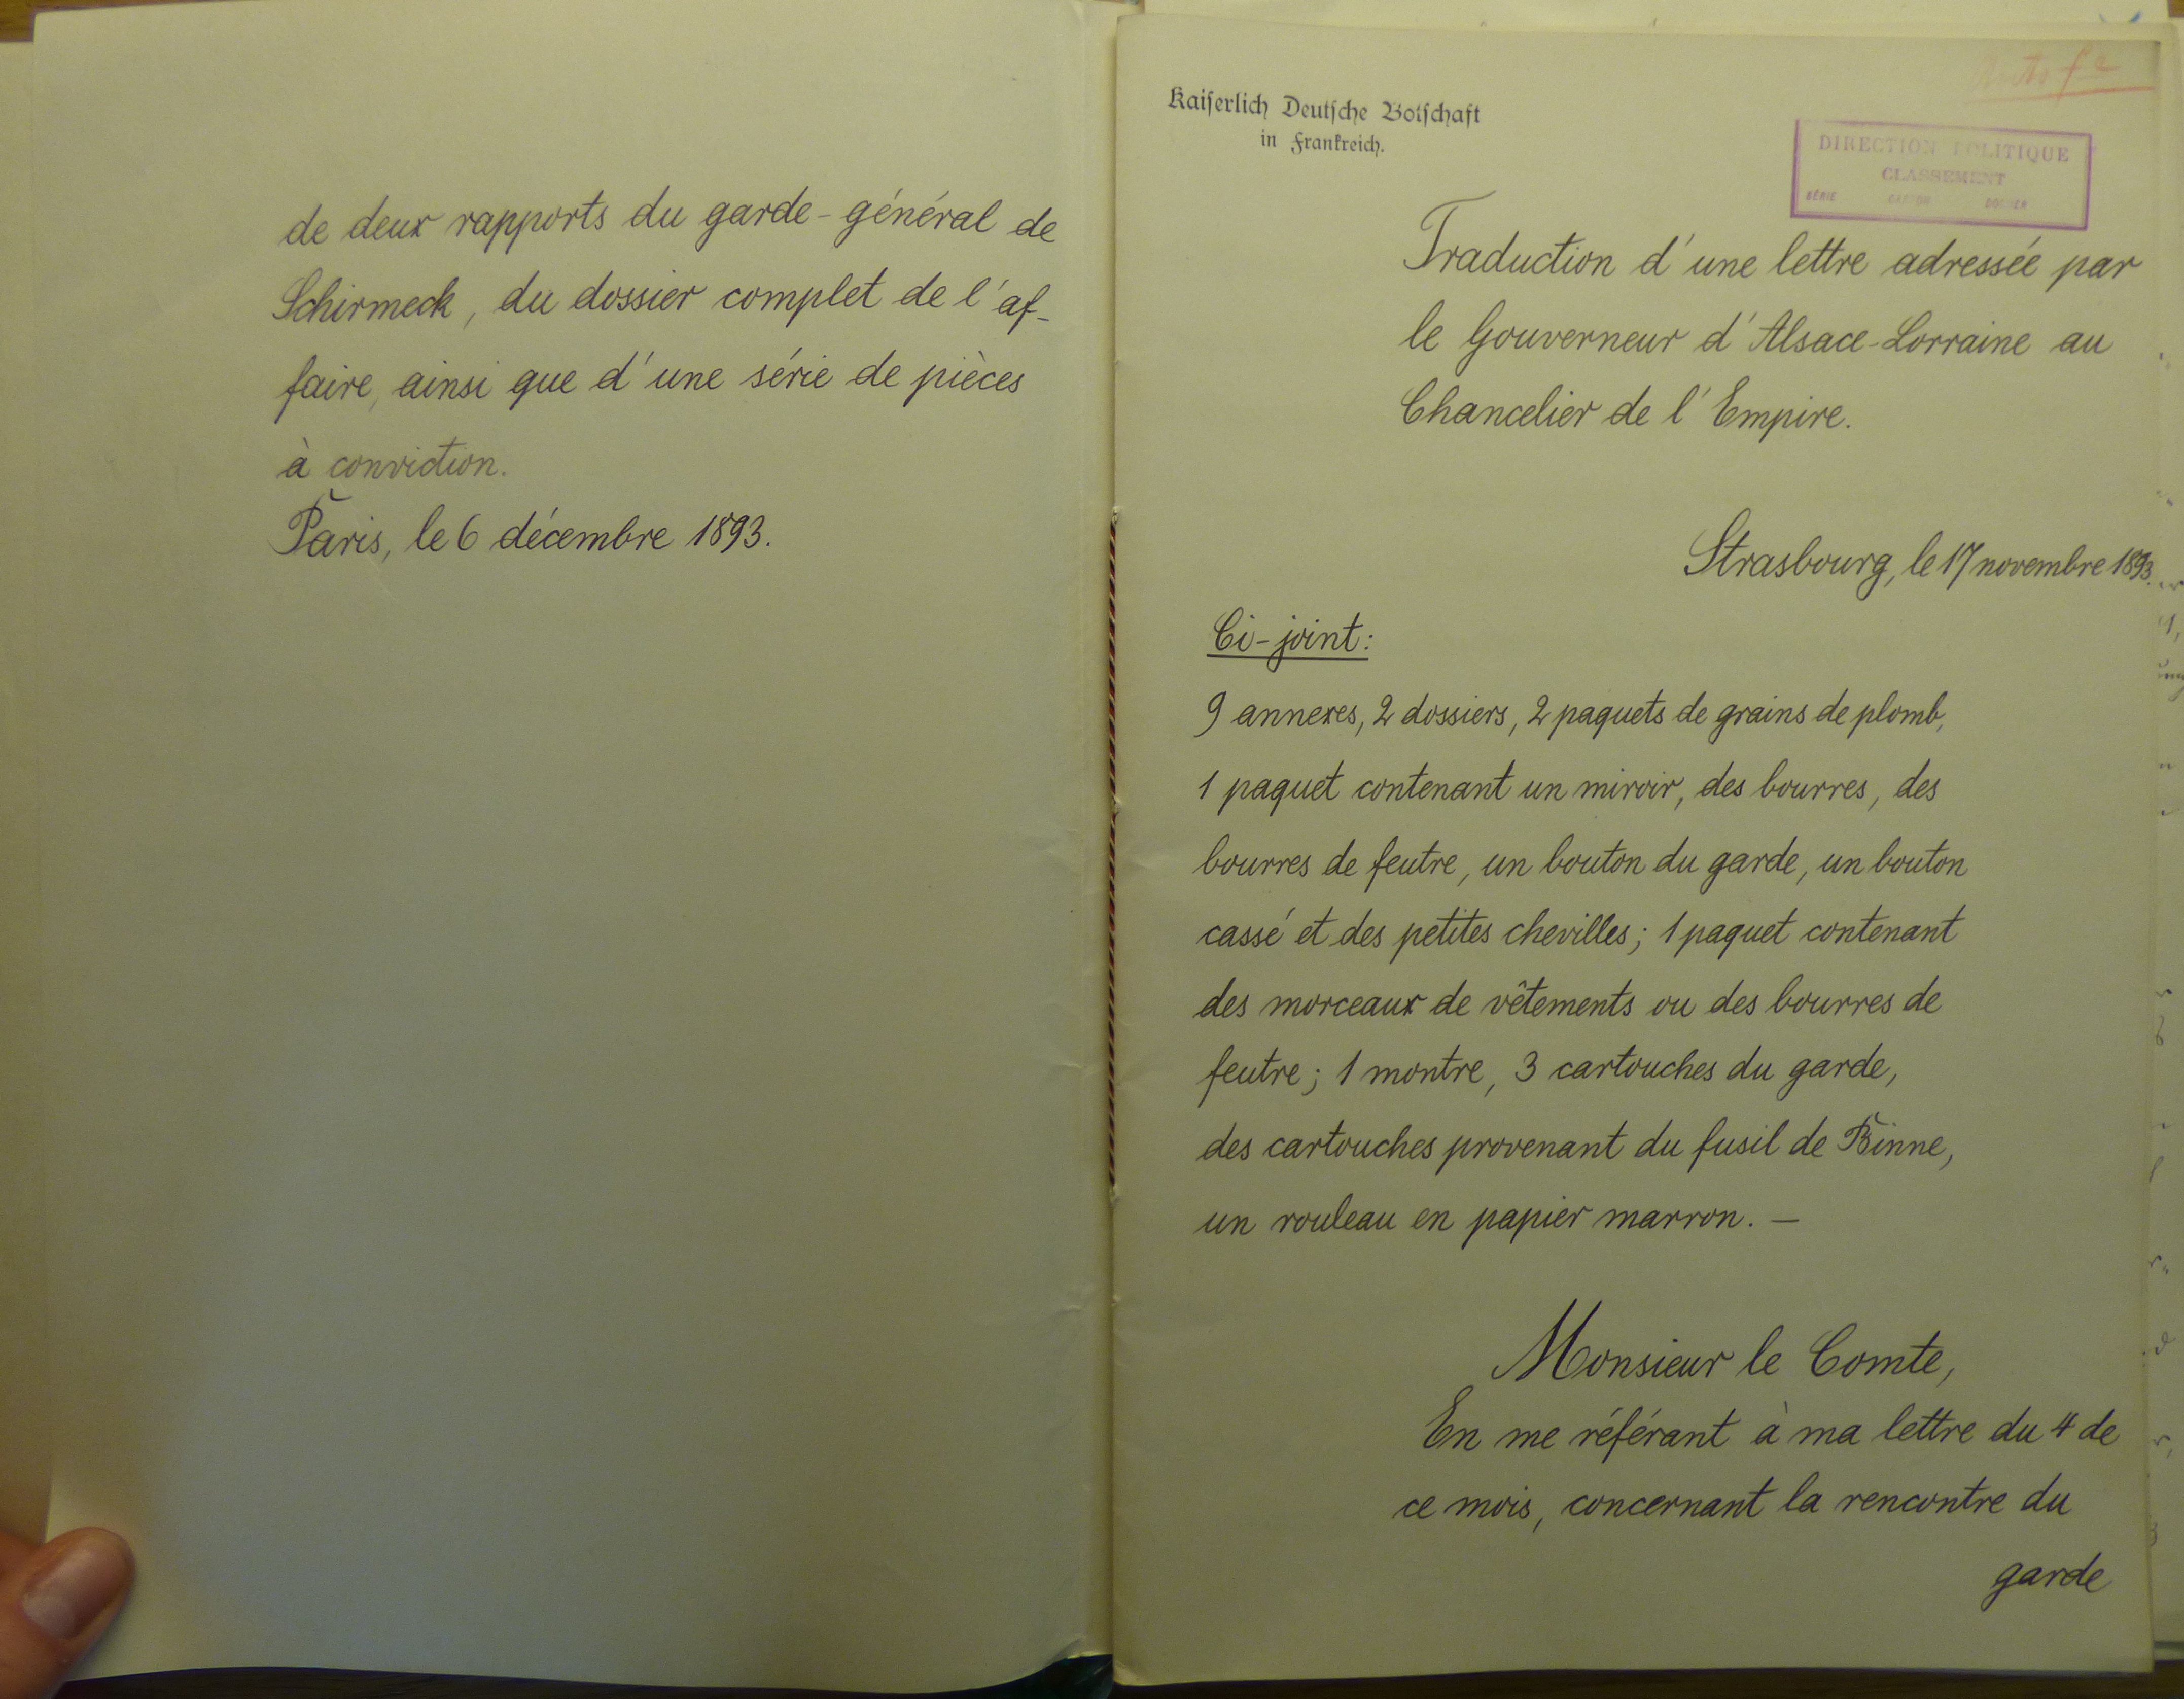 de deux rapports du garde-général de
Schirmeck, du dossier complet de l'af-
faire, ainsi que d'une série de pièces
à conviction.
Paris, le 6 décembre 1893.
Kaiserlich Deutsche Botschaft
in Frankreich.
DIRECTION POLITIQUE
CLASSEMENT
SÉRIE CARTON DOSSIER
Traduction d'une lettre adressée par
le Gouverneur d'Alsace-Lorraine au
Chancelier de l'Empire.
Strasbourg, le 17 novembre 1893.
Ci-joint:
9 annexes, 2 dossiers, 2 paquets de grains de plomb,
1 paquet contenant un miroir, des bourres, des
bourres de feutre, un bouton du garde, un bouton
cassé et des petites chevilles; 1 paquet contenant
des morceaux de vêtements ou des bourres de
feutre; 1 montre, 3 cartouches du garde,
des cartouches provenant du fusil de Binne,
un rouleau en papier marron. —
Monsieur le Comte,
En me référant à ma lettre du 4 de
ce mois, concernant la rencontre du
garde